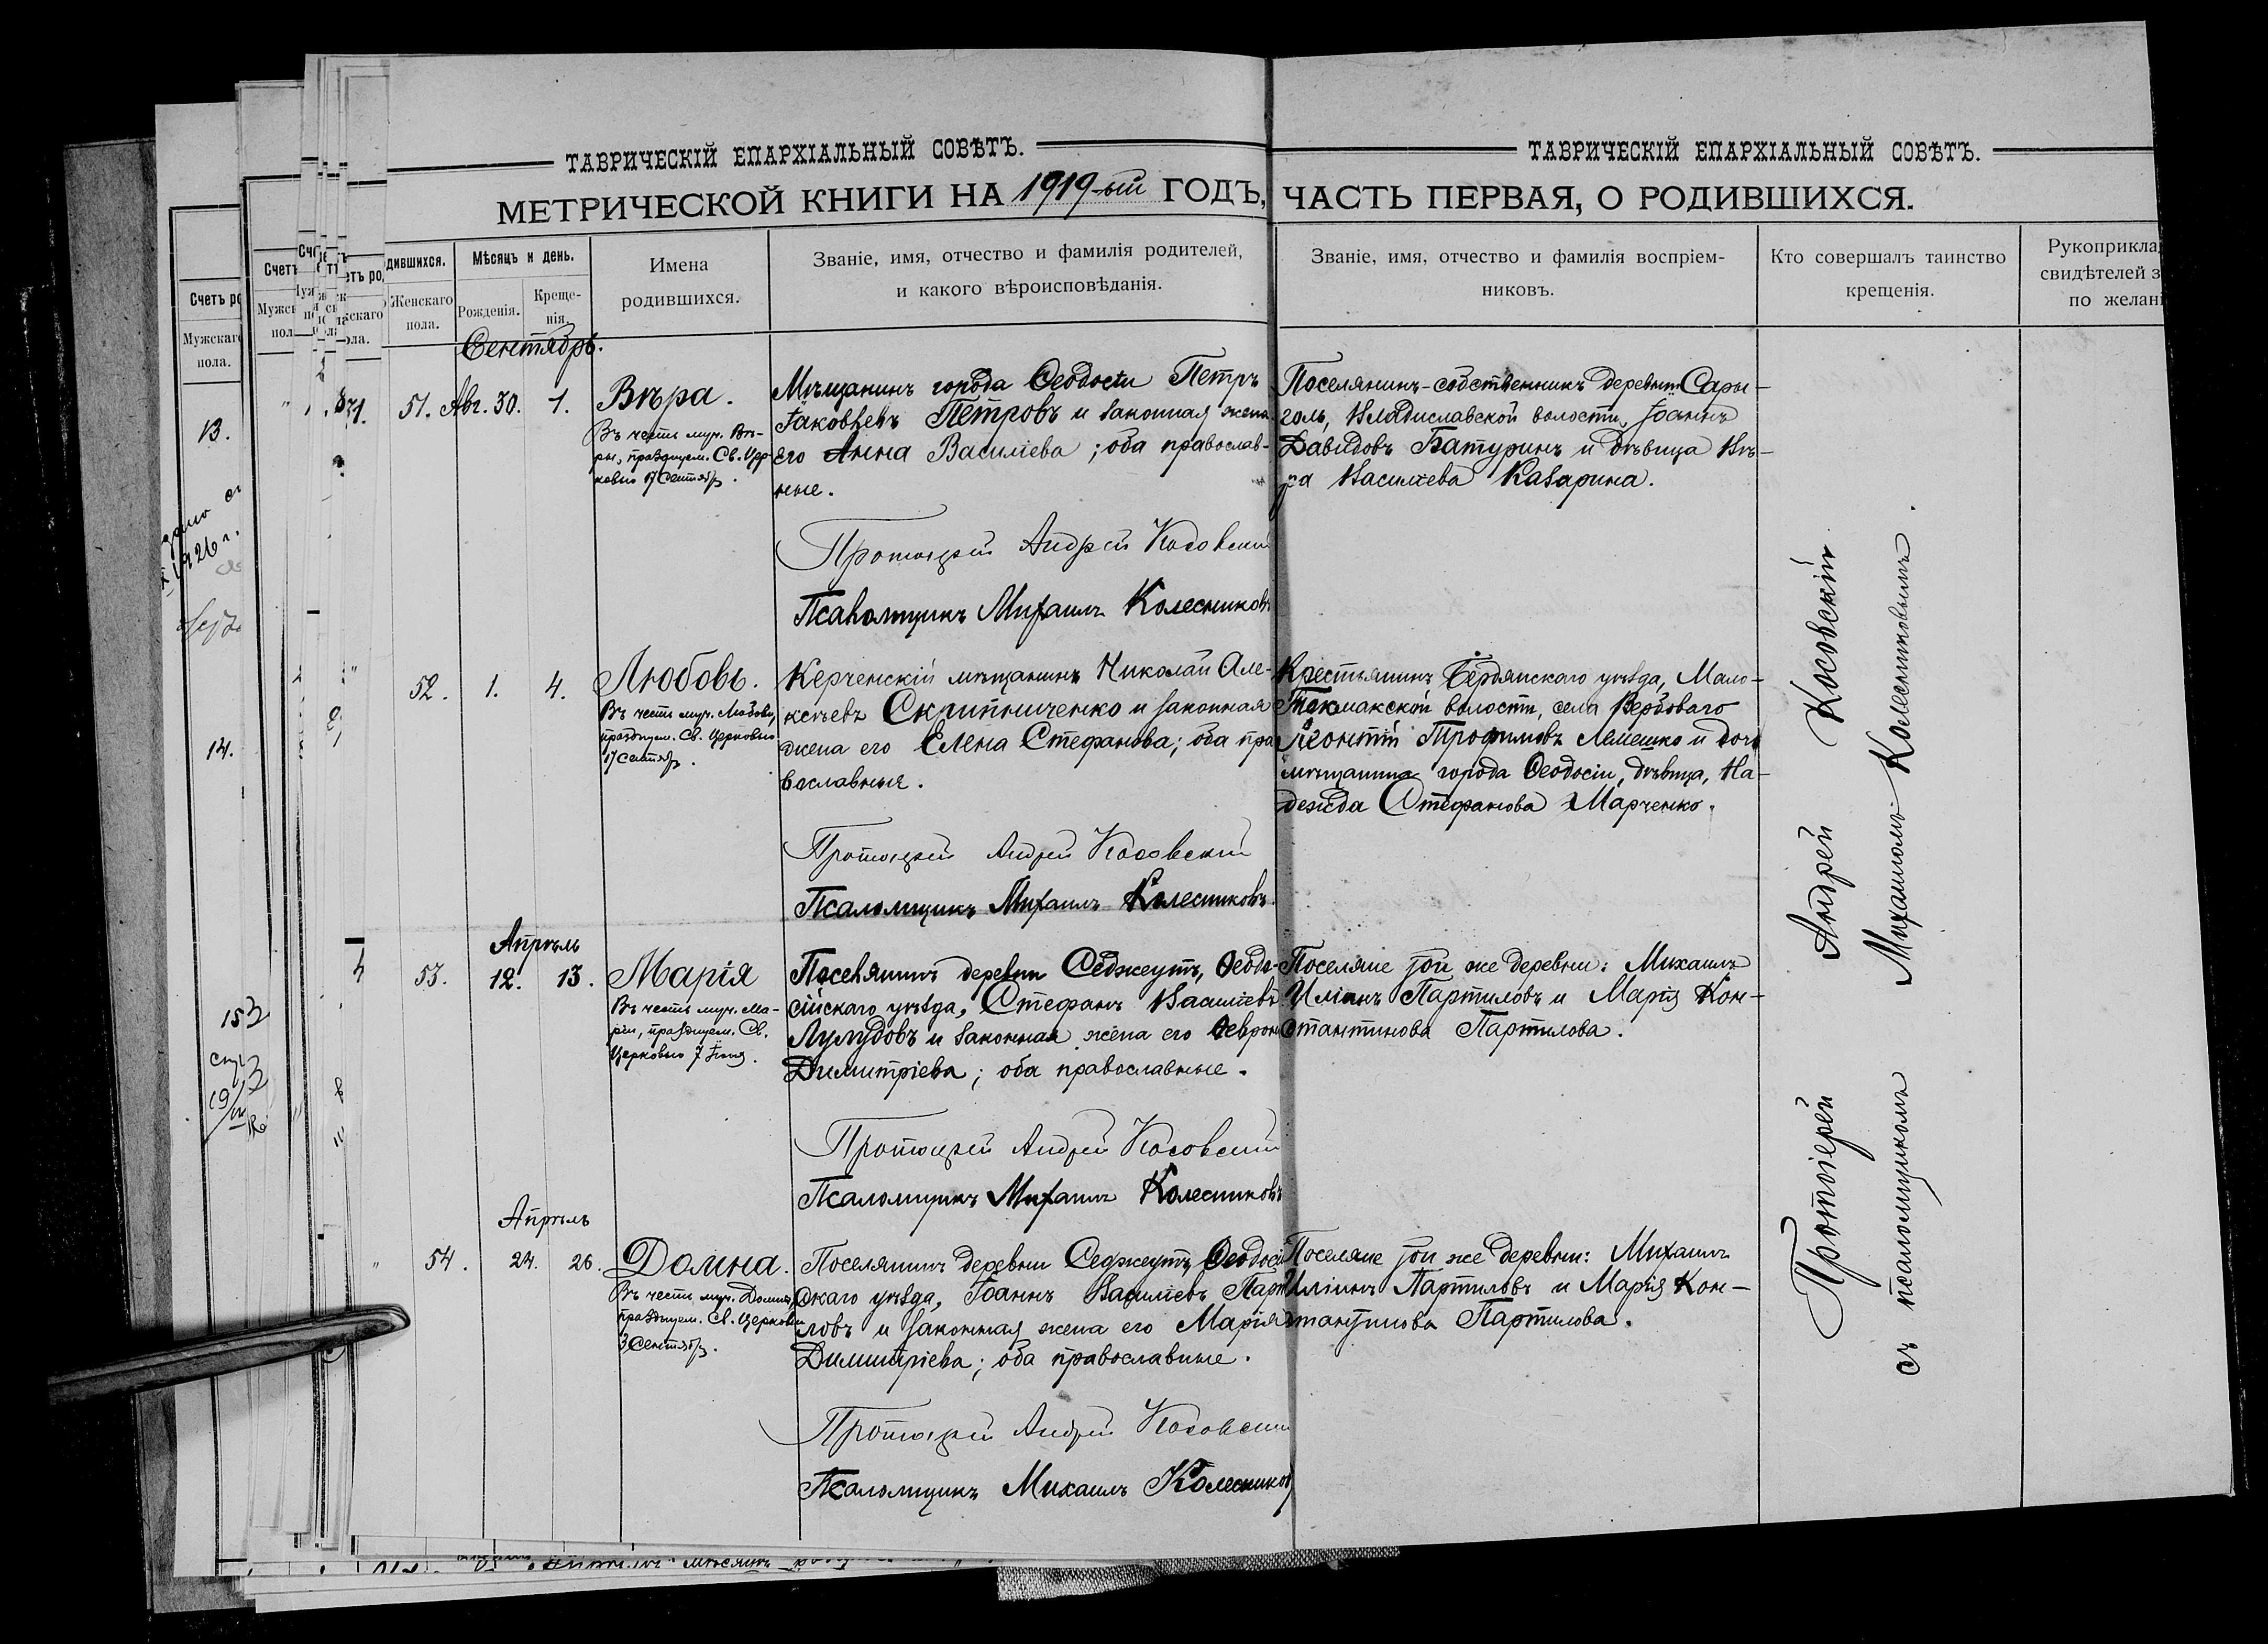 ТАВРИЧЕСКІЙ ЕПАРХІАЛЬНЫЙ СОВѢТЪ.
МЕТРИЧЕСКОЙ КНИГИ НА 1919-ый ГОДЪ,
Счетъ ро
Мужскаго
пола.
дившихся.
Женскаго
пола.
Мѣсяцъ и день.
Рожденія.
Креще-
нія.
Имена
родившихся.
Званіе, имя, отчество и фамилія родителей,
и какого вѣроисповѣданія.
13.
14.
Сентябрь.
51. Авг. 30. 1.
Вѣра.
Въ честь муч. Вѣ-
ры, празднуем. Св. Цер-
ковью 17 Сентябр.
Мѣщанинъ города Ѳеодосіи Петръ
Іаковлевъ Петровъ и законная жена
его Анна Василіева; оба православ-
ные.
Протоіерей Андрей Косовскій
Псаломщикъ Михаилъ Колесниковъ
52. 1. 4.
Любовь.
Въ честь муч. Любови,
празднуем. Св. Церковью
17 Сентябр.
Керченскій мѣщанинъ Николай Але-
ксѣевъ Скрипниченко и законная
жена его Елена Стефанова; оба пра
вославныя.
Протоіерей Андрей Косовскій
Псаломщикъ Михаилъ Колесниковъ.
Апрѣль
53. 12. 13.
Марія
Въ честь муч. Ма-
ріи, празднуем. Св.
Церковью 7 Іюня.
Поселянинъ деревни Седжеутъ, Ѳеодо-
сійскаго уѣзда, Стефанъ Василіевъ
Лулудовъ и законная жена его Ѳеврон
Димитріева; оба православные.
Протоіерей Андрей Косовскій
Псаломщикъ Михаилъ Колесниковъ
Апрѣль
54. 24. 26.
Домна.
Въ честь муч. Домны,
празднуем. Св. Церковью
3 Сентябр.
Поселянинъ деревни Седжеутъ, Ѳеодосій
скаго уѣзда, Іоаннъ Василіевъ Парти
ловъ и законная жена его Марія
Димитріева; оба православные.
Протоіерей Андрей Косовскій
Псаломщикъ Михаилъ Колесниковъ
ТАВРИЧЕСКІЙ ЕПАРХІАЛЬНЫЙ СОВѢТЪ.
ЧАСТЬ ПЕРВАЯ, О РОДИВШИХСЯ.
Званіе, имя, отчество и фамилія воспріем-
никовъ.
Кто совершалъ таинство
крещенія.
Рукоприкла
свидѣтелей з
по желані
Поселянинъ-собственникъ деревни Сары-
голь, Владиславской волости, Іоаннъ
Давидовъ Батуринъ и дѣвица Вѣ-
ра Василіева Казарина.
Крестьянинъ Бердянскаго уѣзда, Мало-
Токмакской волости, села Вербоваго
Леонтій Трофимовъ Лемешко и дочь
мѣщанина города Ѳеодосіи, дѣвица, На-
дежда Стефанова Марченко.
Поселяне той же деревни: Михаилъ
Иліинъ Партиловъ и Марія Кон-
стантинова Партилова.
Поселяне той же деревни: Михаилъ
Иліинъ Партиловъ и Марія Кон-
стантинова Партилова.
Протоіерей Андрей Косовскій
съ псаломщикомъ Михаиломъ Колесниковымъ.